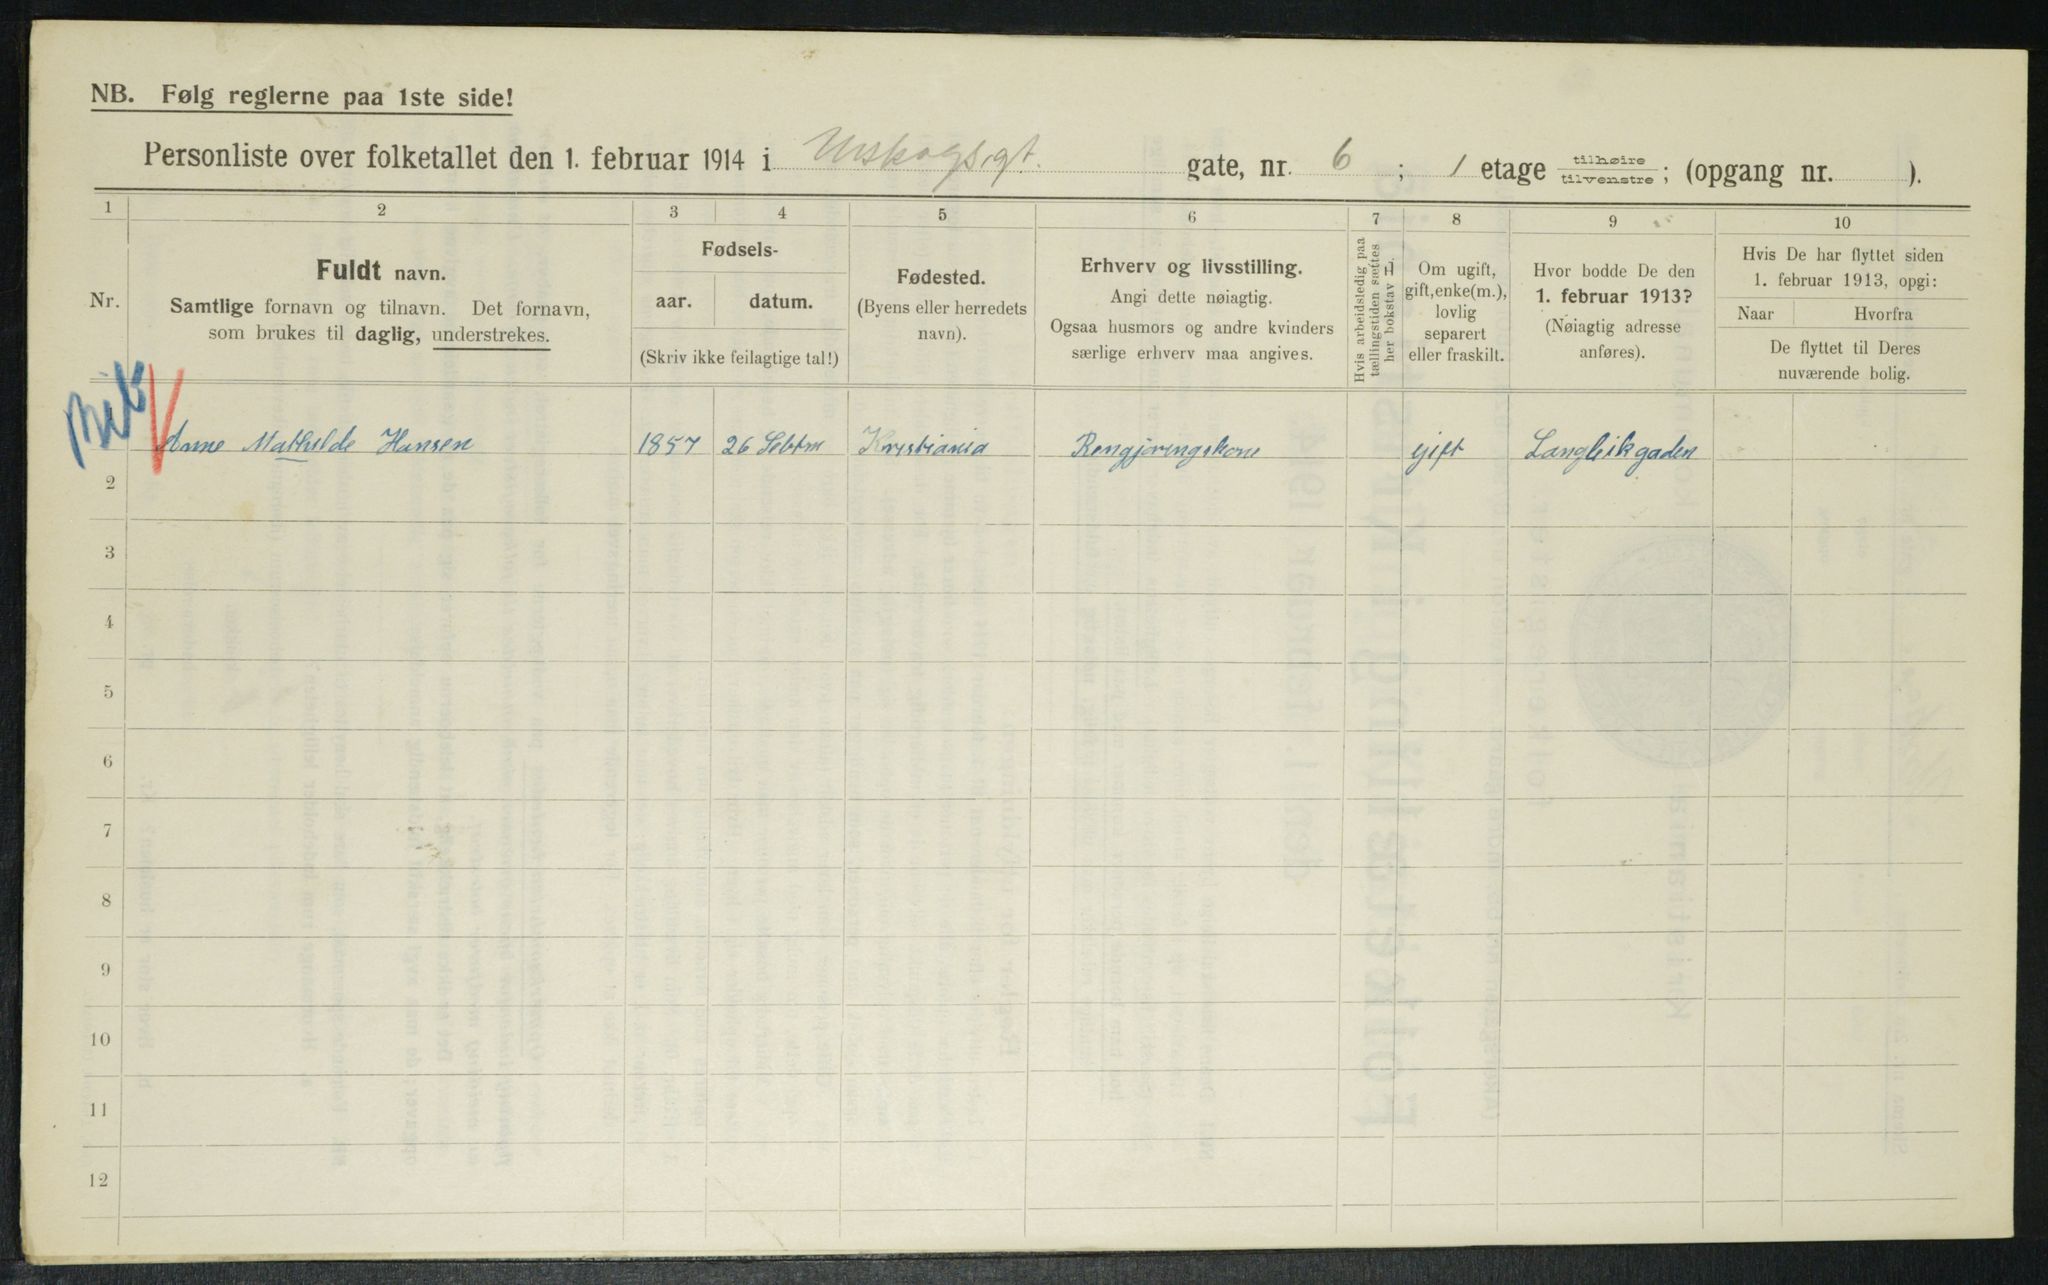 NB. Følg reglerne paa 1ste side!
Personliste over folketallet den 1. februar 1914 i Urskogsgt. gate, nr. 6 ; 1 etage tilhøire tilvenstre ; (opgang nr. ).
1 2 3 4 5 6 7 8 9 10
Nr.
Fuldt navn.
Samtlige fornavn og tilnavn. Det fornavn,
som brukes til daglig, understrekes.
Fødsels-
aar. datum.
(Skriv ikke feilagtige tal!)
Fødested.
(Byens eller herredets
navn).
Erhverv og livsstilling.
Angi dette nøiagtig.
Ogsaa husmors og andre kvinders
særlige erhverv maa angives.
Hvis arbeidsledig paa
tællingstiden sættes
her bokstav L.
Om ugift,
gift, enke(m.),
lovlig
separert
eller fraskilt.
Hvor bodde De den
1. februar 1913?
(Nøiagtig adresse
anføres).
Hvis De har flyttet siden
1. februar 1913, opgi:
Naar Hvorfra
De flyttet til Deres
nuværende bolig.
Anne Mathilde Hansen 1857 26 Sebtm Kristiania Rengjøringskone gift Langleikgaden
2
3
4
5
6
7
8
9
10
11
12